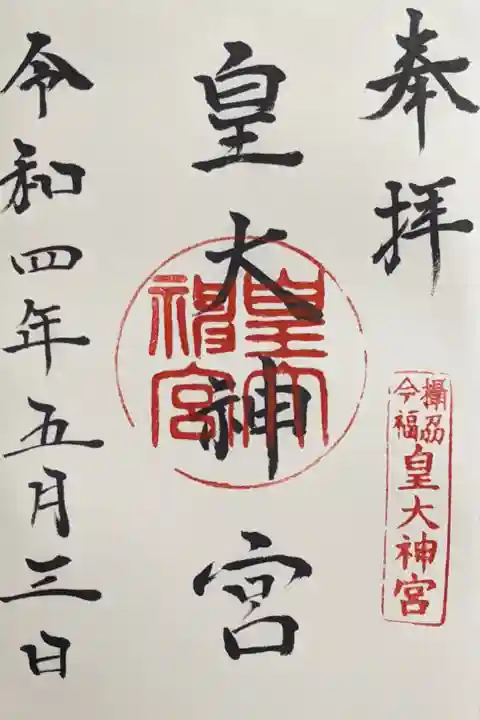 奉拝
攝刕
今福
皇大神宮
皇大神宮
皇大神宮
令和四年五月三日